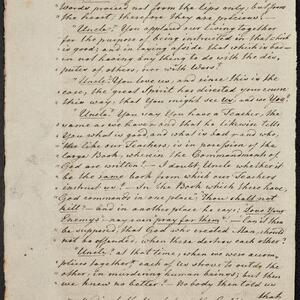 Words proceed not from the lips only, but from
the heart, therefore they are precious!—
"Uncle! You applaud our living together
for the purpose of being instructed in that which
is good; and in laying aside that which is bad—
in not having any thing to do with the dis=
putes of others, nor with Wars?
"Uncle! You love us, and since this is the
case, the great Spirit has directed your course
this way; that You might see us—as we You?
"Uncle! You say You have a Teacher, the
same as we have—and that he likewise tells
You what is good and what is bad—and who,
like our Teachers, is in possession of the
large Book wherein the Commandments of
God are written!—I doubt, Uncle whether it
be the same book from which our Teachers
instruct us?—In the Book which these have,
God commands in one place "Thou shalt not
kill—and in another place he says; Love Your
Enemys—nay even pray for them!—Can it then
be supposed, that God who created Man, should
not be offended, when these destroy each other?
"Uncle! at that time when we were accom,
plices together—each of us strove to outdo the
other, in murdering human beings; but then
we knew no better?—Nobody then told us
that